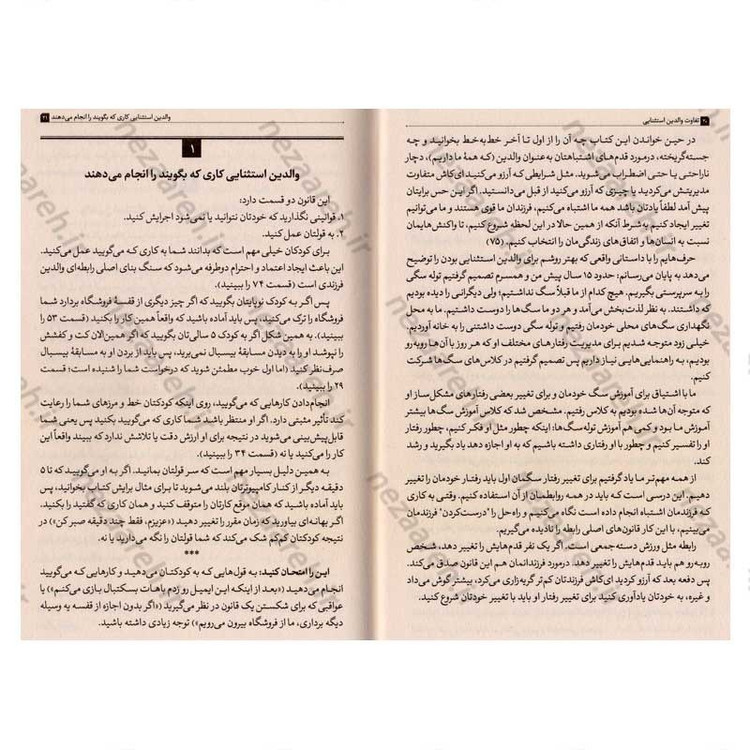 ۲۰ تفاوت والدین استثنایی
در حین خواندن این کتاب چه آن را از اول تا آخر خط‌به‌خط بخوانید و چه
جسته‌گریخته، درمورد قدم‌های اشتباهتان به‌عنوان والدین (که همۀ ما داریم)، دچار
ناراحتی یا حتی اضطراب می‌شوید. مثل شرایطی که آرزو می‌کنید ای‌کاش متفاوت
مدیریتش می‌کردید یا چیزی که آرزو می‌کنید از قبل می‌دانستید. اگر این حس برایتان
پیش آمد لطفاً یادتان باشد همه ما اشتباه می‌کنیم، فرزندان ما قوی هستند و ما می‌توانیم
تغییر ایجاد کنیم به‌شرط آنکه از همین حالا در این لحظه شروع کنیم، تا واکنش‌هایمان
نسبت به انسان‌ها و اتفاق‌های زندگی‌مان را انتخاب کنیم. (۷۵)
حرف‌هایم را با داستانی واقعی که بهتر روشم برای والدین استثنایی بودن را توضیح
می‌دهد به پایان می‌رسانم؛ حدود ۱۵ سال پیش من و همسرم تصمیم گرفتیم توله سگی
را به سرپرستی بگیریم. هیچ کدام از ما قبلاً سگ نداشتیم؛ ولی دیگرانی را دیده بودیم
که داشتند. به نظر لذت‌بخش می‌آمد و هر دو ما سگ‌ها را دوست داشتیم. ما به محل
نگهداری سگ‌های محلی خودمان رفتیم و توله سگی دوست داشتنی را به خانه آوردیم.
خیلی زود متوجه شدیم برای مدیریت رفتارهای مختلف او که هر روز با آن‌ها روبه‌رو
بودیم، به راهنمایی‌هایی نیاز داریم پس تصمیم گرفتیم در کلاس‌های سگ‌ها شرکت
کنیم.
ما با اشتیاق برای آموزش سگ خودمان و برای تغییر بعضی رفتارهای مشکل‌ساز او
که متوجه آن‌ها شده بودیم به کلاس رفتیم. مشخص شد که کلاس آموزش سگ‌ها بیشتر
آموزش ما بـود و کمی هم آموزش توله‌سگ‌ها: اینکه چطور مثل او فکر کنیم، چطور رفتار
او را تفسیر کنیم و چطور با او رفتاری داشته باشیم که به او اجازه دهد یاد بگیرید و رشد
کند.
از همه مهم‌تر ما یاد گرفتیم برای تغییر رفتار سگمان اول باید رفتار خودمان را تغییر
دهیم. این درسی است که باید در همه روابطمان از آن استفاده کنیم. وقتی به کاری
که فرزندمان اشتباه انجام داده است نگاه می‌کنیم و راه‌حل را "درست‌کردن" فرزندمان
می‌بینیم، با این کار قانون‌های اصلی رابطه را نادیده می‌گیریم.
رابطه مثل ورزش دسته‌جمعی است. اگر یک نفر قدم‌هایش را تغییر دهد، شخص
روبه‌رو هم باید قدم‌هایش را تغییر دهد. درمورد فرزندانمان هم این قانون صدق می‌کند.
پس دفعه بعد که آرزو کردید ای‌کاش فرزندتان کم‌تر گریه‌زاری می‌کرد، بیشتر گوش می‌داد
و غیره، به خودتان یادآوری کنید برای تغییر رفتار او باید با تغییر خودتان شروع کنید.
والدین استثنایی کاری که بگویند را انجام می‌دهند ۲۱
۱
والدین استثنایی کاری که بگویند را انجام می‌دهند
این قانون دو قسمت دارد:
۱. قوانینی نگذارید که خودتان نتوانید یا نمی‌شود اجرایش کنید.
۲. به قولتان عمل کنید.
برای کودکان خیلی مهم است که بدانند شما به کاری که می‌گویید عمل می‌کنید.
این باعث ایجاد اعتماد و احترام دوطرفه می‌شود که سنگ بنای اصلی رابطه‌ای والدین
فرزندی است (قسمت ۷۴ را ببینید).
پس اگر به کودک نوپایتان بگویید که اگر چیز دیگری از قفسۀ فروشگاه بردارد شما
فروشگاه را ترک می‌کنید، پس باید آماده باشید که واقعاً همین کار را بکنید (قسمت ۵۳ را
ببینید). به همین شکل اگر به کودک ۵ سالی‌تان بگویید که اگر همین‌الان کت و کفشش
را نپوشد او را به دیدن مسابقۀ بیسبال نمی‌برید، پس باید از بردن او به مسابقۀ بیسبال
صرف‌نظر کنید (اما اول خوب مطمئن شوید که درخواست شما را شنیده است: قسمت
۲۹ را ببینید).
انجام‌دادن کارهایی که می‌گویید، روی اینکه کودکتان خط و مرزهای شما را رعایت
کند تأثیر مثبتی دارد. اگر او منتظر باشد شما کاری که می‌گویید بکنید پس یعنی شما
قابل‌پیش‌بینی می‌شوید در نتیجه برای او ارزش دقت یا تلاشش ندارد که ببیند واقعاً این
کار را می‌کنید یا نه (قسمت ۳۴ را ببینید).
به همین دلیل بسیار مهم است که سر قولتان بمانید. اگر به او می‌گویید که تا ۵
دقیقه دیگر از کنار کامپیوترتان بلند می‌شوید تا برای مثال برایش کتاب بخوانید، پس
باید آماده باشید که همان موقع کارتان را متوقف کنید و همان کاری که گفتید را بکنید.
اگر بهانه‌ای بیاورید که زمان مقرر را تغییر دهید («عزیزم، فقط چند دقیقه صبر کن») در
نتیجه کودکتان کم‌کم شک می‌کند که شما قولتان را نگه می‌دارید یا نه.
***
این را امتحان کنید: به قول‌هایی که به کودکتان می‌دهید و کارهایی که می‌گویید
انجام می‌دهید («بعد از اینکه این ایمیل رو زدم باهات بسکتبال بازی می‌کنم») یا
عواقبی که برای شکستن یک قانون در نظر می‌گیرید («اگر بدون اجازه از قفسه یه وسیله
دیگه برداری، ما از فروشگاه بیرون می‌رویم») توجه زیادی داشته باشید.
nezaareh.ir